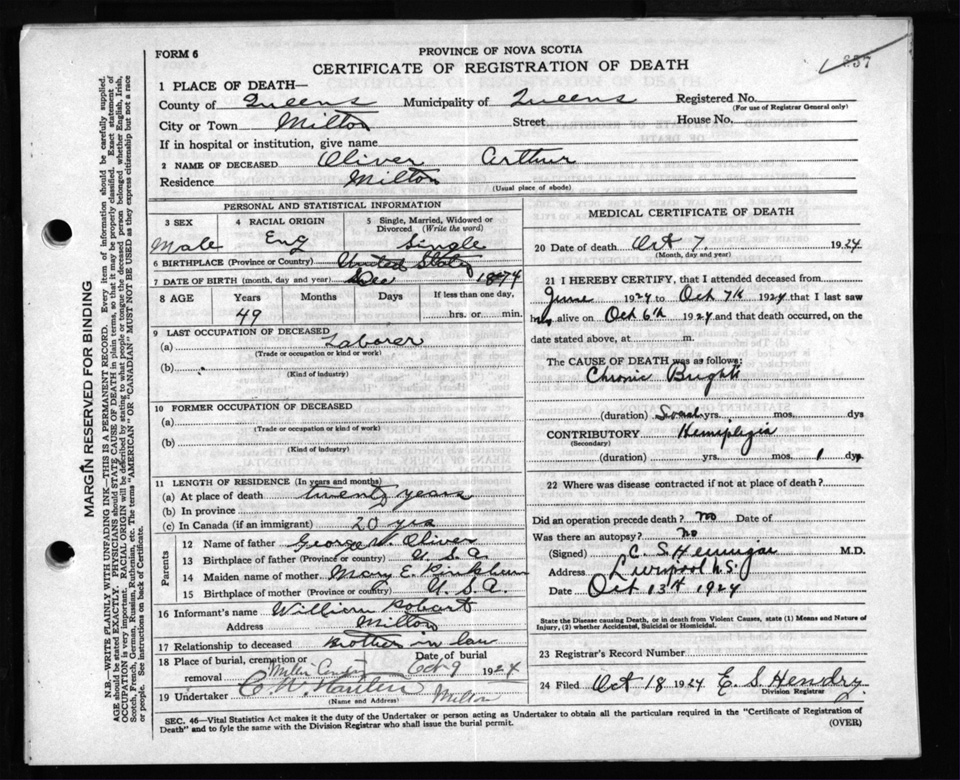 FORM 6
PROVINCE OF NOVA SCOTIA
CERTIFICATE OF REGISTRATION OF DEATH
837
1 PLACE OF DEATH—
County of Queens Municipality of Queens Registered No.
(For use of Registrar General only)
City or Town Milton Street House No.
If in hospital or institution, give name
2 NAME OF DECEASED Oliver Arthur
Residence Milton
(Usual place of abode)
PERSONAL AND STATISTICAL INFORMATION
3 SEX 4 RACIAL ORIGIN 5 Single, Married, Widowed or Divorced (Write the word)
Male Eng Single
6 BIRTHPLACE (Province or Country) United States
7 DATE OF BIRTH (month, day and year) Dec 1874
8 AGE Years Months Days If less than one day,
49 hrs. or min.
9 LAST OCCUPATION OF DECEASED
(a) Laborer
(Trade or occupation or kind or work)
(b)
(Kind of industry)
10 FORMER OCCUPATION OF DECEASED
(a)
(Trade or occupation or kind of work)
(b)
(Kind of industry)
11 LENGTH OF RESIDENCE (In years and months)
(a) At place of death twenty years
(b) In province
(c) In Canada (if an immigrant) 20 yrs
Parents
12 Name of father George W. Oliver
13 Birthplace of father (Province or country) U.S.A.
14 Maiden name of mother Mary E. Pinkham
15 Birthplace of mother (Province or country) U.S.A.
16 Informant's name William Robart
Address Milton
17 Relationship to deceased Brother in law
18 Place of burial, cremation or removal Date of burial
Milton Oct 9 1924
19 Undertaker Milton
(Name and Address)
MEDICAL CERTIFICATE OF DEATH
20 Date of death Oct 7. 1924
(Month, day and year)
21 I HEREBY CERTIFY, that I attended deceased from
June 1924 to Oct 7th 1924 that I last saw
him alive on Oct 6th 1924 and that death occurred, on the
date stated above, at m.
The CAUSE OF DEATH was as follows:
Chronic Brights
(duration) yrs. mos. dys
CONTRIBUTORY Hemiplegia
(Secondary)
(duration) yrs. mos. 1 dys
22 Where was disease contracted if not at place of death?
Did an operation precede death? No Date of
Was there an autopsy? No
(Signed) C. S. Hennigar M.D.
Address Liverpool N.S.
Date Oct 13th 1924
State the Disease causing Death, or in death from Violent Causes, state (1) Means and Nature of
Injury, (2) whether Accidental, Suicidal or Homicidal.
23 Registrar's Record Number
24 Filed Oct 18 1924 E. S. Hendry
Division Registrar
SEC. 46—Vital Statistics Act makes it the duty of the Undertaker or person acting as Undertaker to obtain all the particulars required in the "Certificate of Registration of
Death" and to fyle the same with the Division Registrar who shall issue the burial permit.
(OVER)
MARGIN RESERVED FOR BINDING
N.B.—WRITE PLAINLY WITH UNFADING INK—THIS IS A PERMANENT RECORD. Every item of information should be carefully supplied.
AGE should be stated EXACTLY. PHYSICIANS should STATE CAUSE OF DEATH in plain terms, so that it may be properly classified. Exact statement of
OCCUPATION is very important. RACIAL ORIGIN will be described by stating to what people or tongue the deceased person belonged whether English, Irish,
Scotch, French, German, Russian, Ruthenian, etc. The terms "AMERICAN" or "CANADIAN" MUST NOT BE USED as they express citizenship but not a race
or people. See instructions on back of Certificate.